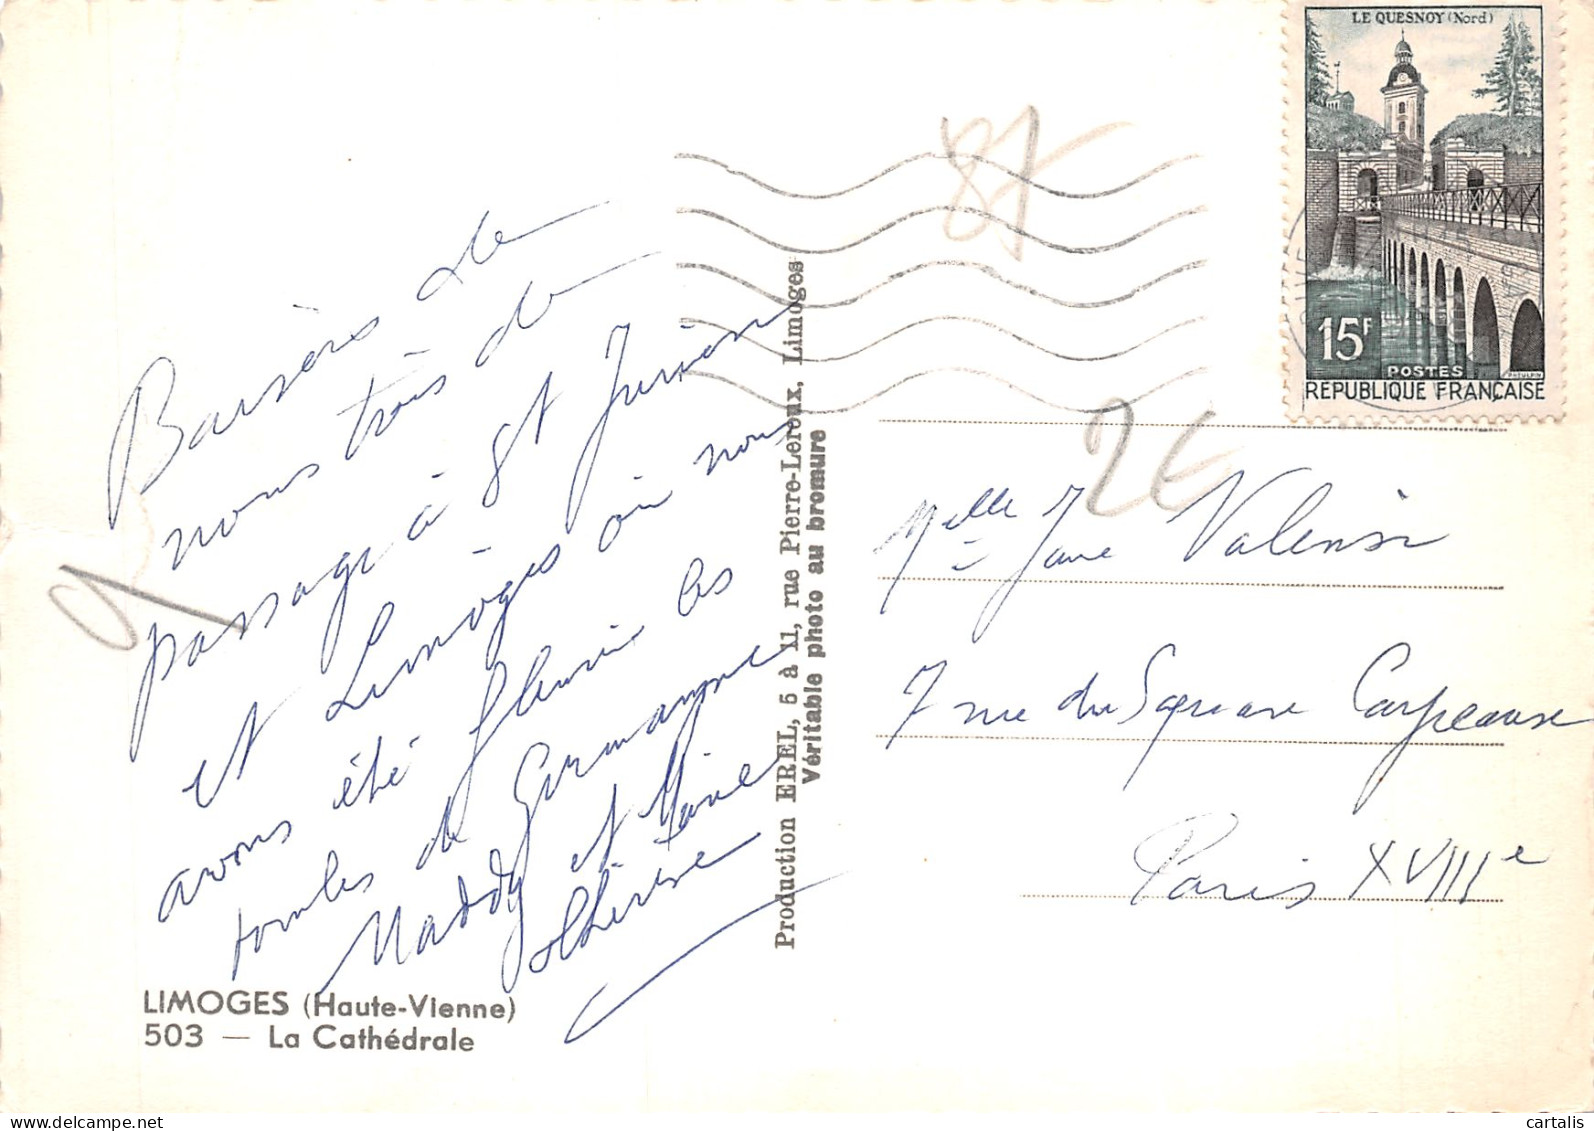 LE QUESNOY (Nord)
15F
POSTES
RÉPUBLIQUE FRANÇAISE
87
2€
9
de
nous trois de
passage à St Junien
et Limoges où nous
avons été fleurir les
tombes de Germaine
Maddy et Marie
Thérèse
Production EREL, 5 à 11, rue Pierre-Leroux, Limoges
Véritable photo au bromure
Melle Jane Valensi
7 rue du Square Carpeaux
Paris XVIIIe
LIMOGES (Haute-Vienne)
503 — La Cathédrale
cartalis